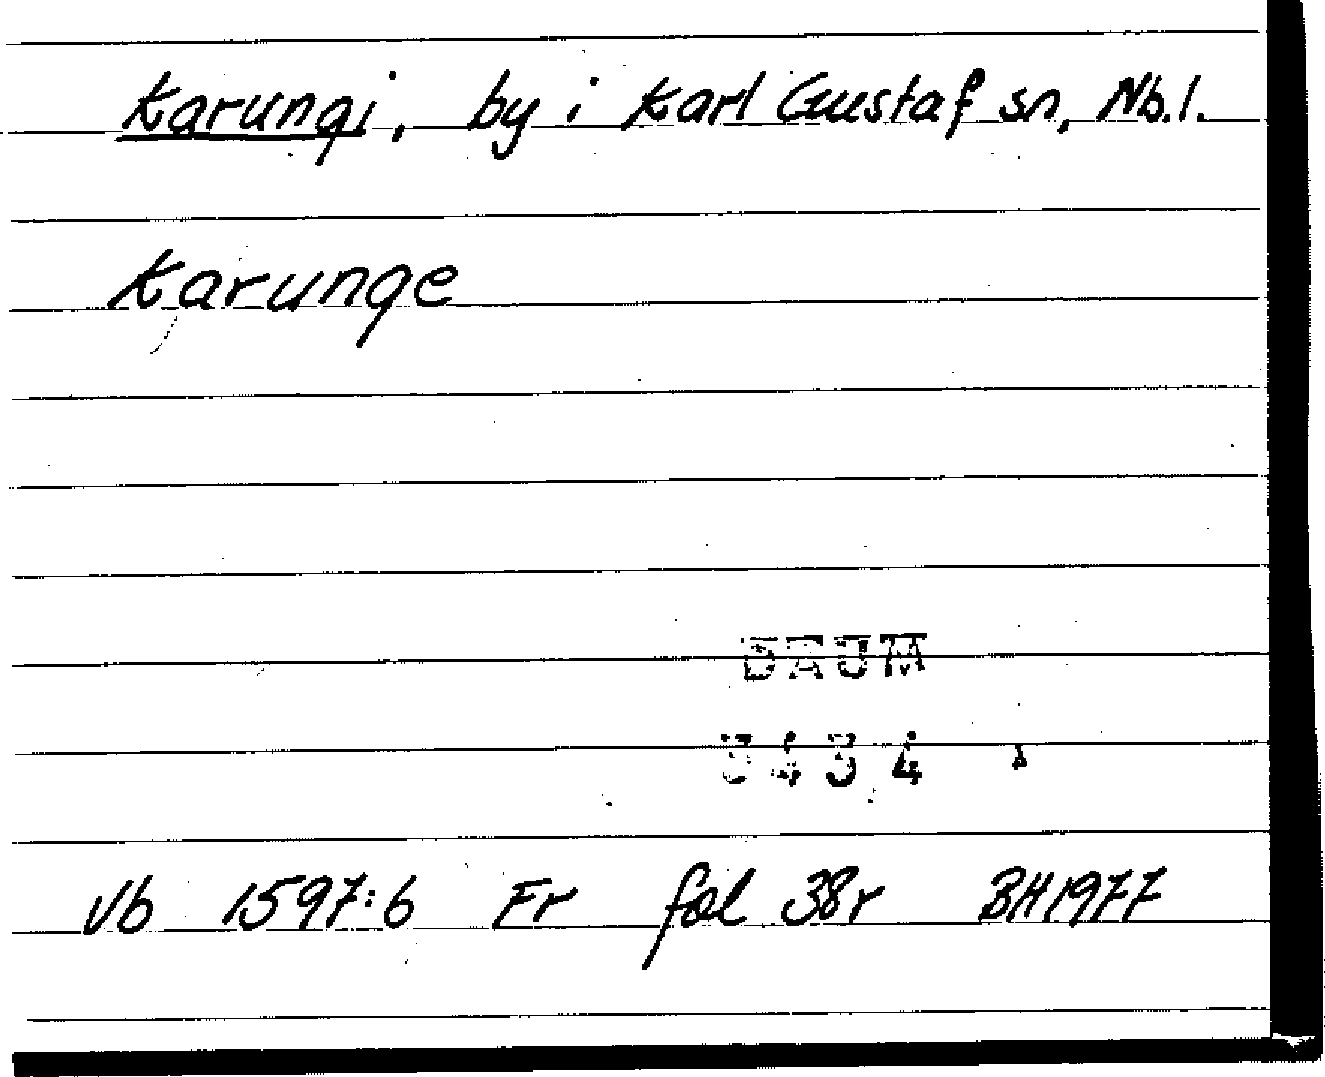 Karungi, by i Karl Gustaf sn, Nb.l.
Karunge
DAUM
3434
Vb 1597:6 Fr fol 38r BH1977